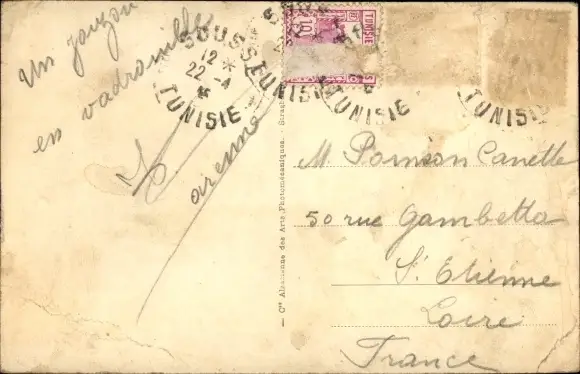 Un
en vadrouille
SOUSSE
12 *
22 - 4
TUNISIE
TUNISIE
TUNISIE
TUNISIE
TUNISIE
10
— Cie Alsacienne des Arts Photomécaniques. - Strasb
M. Poinson Canette
50 rue Gambetta
St Etienne
Loire
France